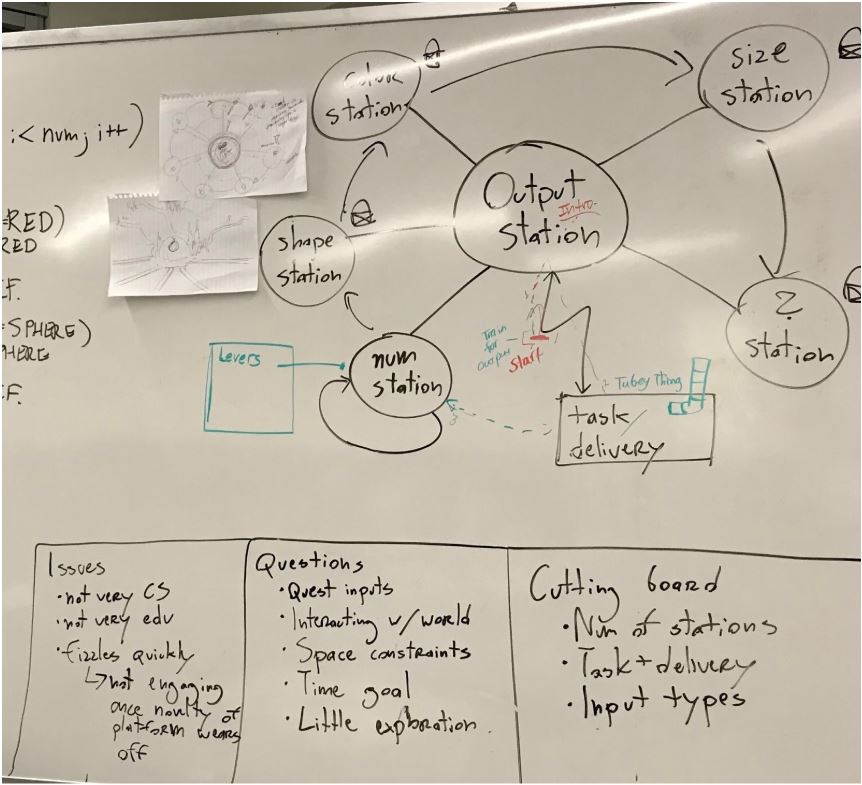 ; < num; i++)
= RED)
RED
F.
= SPHERE)
HERE
F.
colour
station
size
station
Output
Intro.
station
shape
station
?
station
Levers
num
station
Train
for
output
Start
Tubey Thing
task
delivery
Issues
• not very CS
• not very edu
• fizzles quickly
↳ not engaging
once novelty of
platform wears
off
Questions
• Quest inputs
• Interacting w/world
• Space constraints
• Time goal
• Little exploration
Cutting board
• Num of stations
• Task + delivery
• Input types